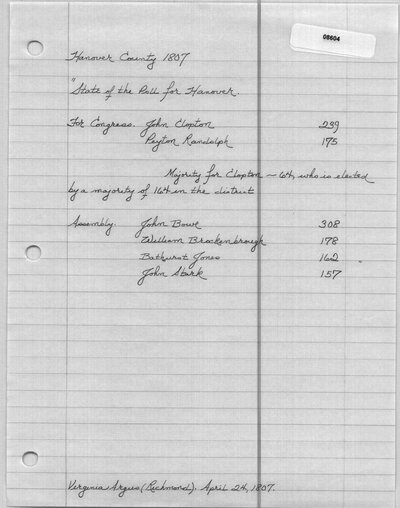 08604
Hanover County 1807
"State of the Poll for Hanover.
For Congress. John Clopton 239
Peyton Randolph 175
Majority for Clopton - 64, who is elected
by a majority of 164 in the district
Assembly. John Bowe 308
William Brockenbrough 178
Bathurst Jones 162
John Stark 157
Virginia Argus (Richmond). April 24, 1807.